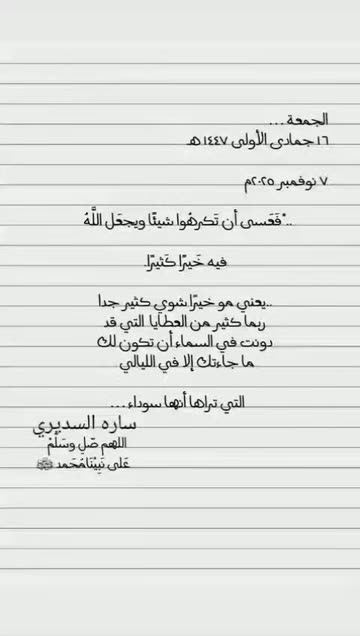 الجمعة...
١٦ جمادى الأولى ١٤٤٧ هـ
٧ نوفمبر ٢٠٢٥م
.."فَعَسى أن تَكرهُوا شيئًا ويجعَل اللَّهُ
فيه خَيرًا كَثيرًا.
..يعني مو خيرًا شوي كثير جدا
ربما كثير من العطايا التي قد
دونت في السماء أن تكون لك
ما جاءتك إلا في الليالي
التي تراها أنها سوداء...
ساره السديري
اللهم صّلِ وسَلّمْ
عَلى نَبِيْنَا مُحَمد ﷺ